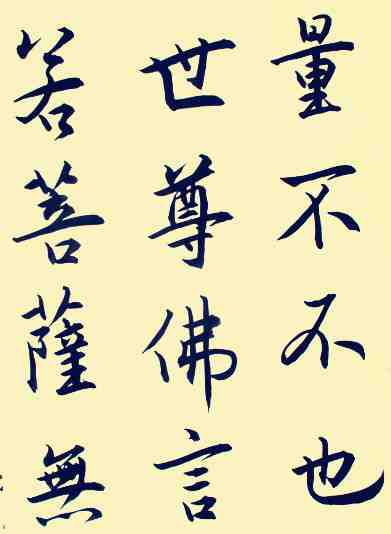 量不不也
世尊佛言
若菩薩無